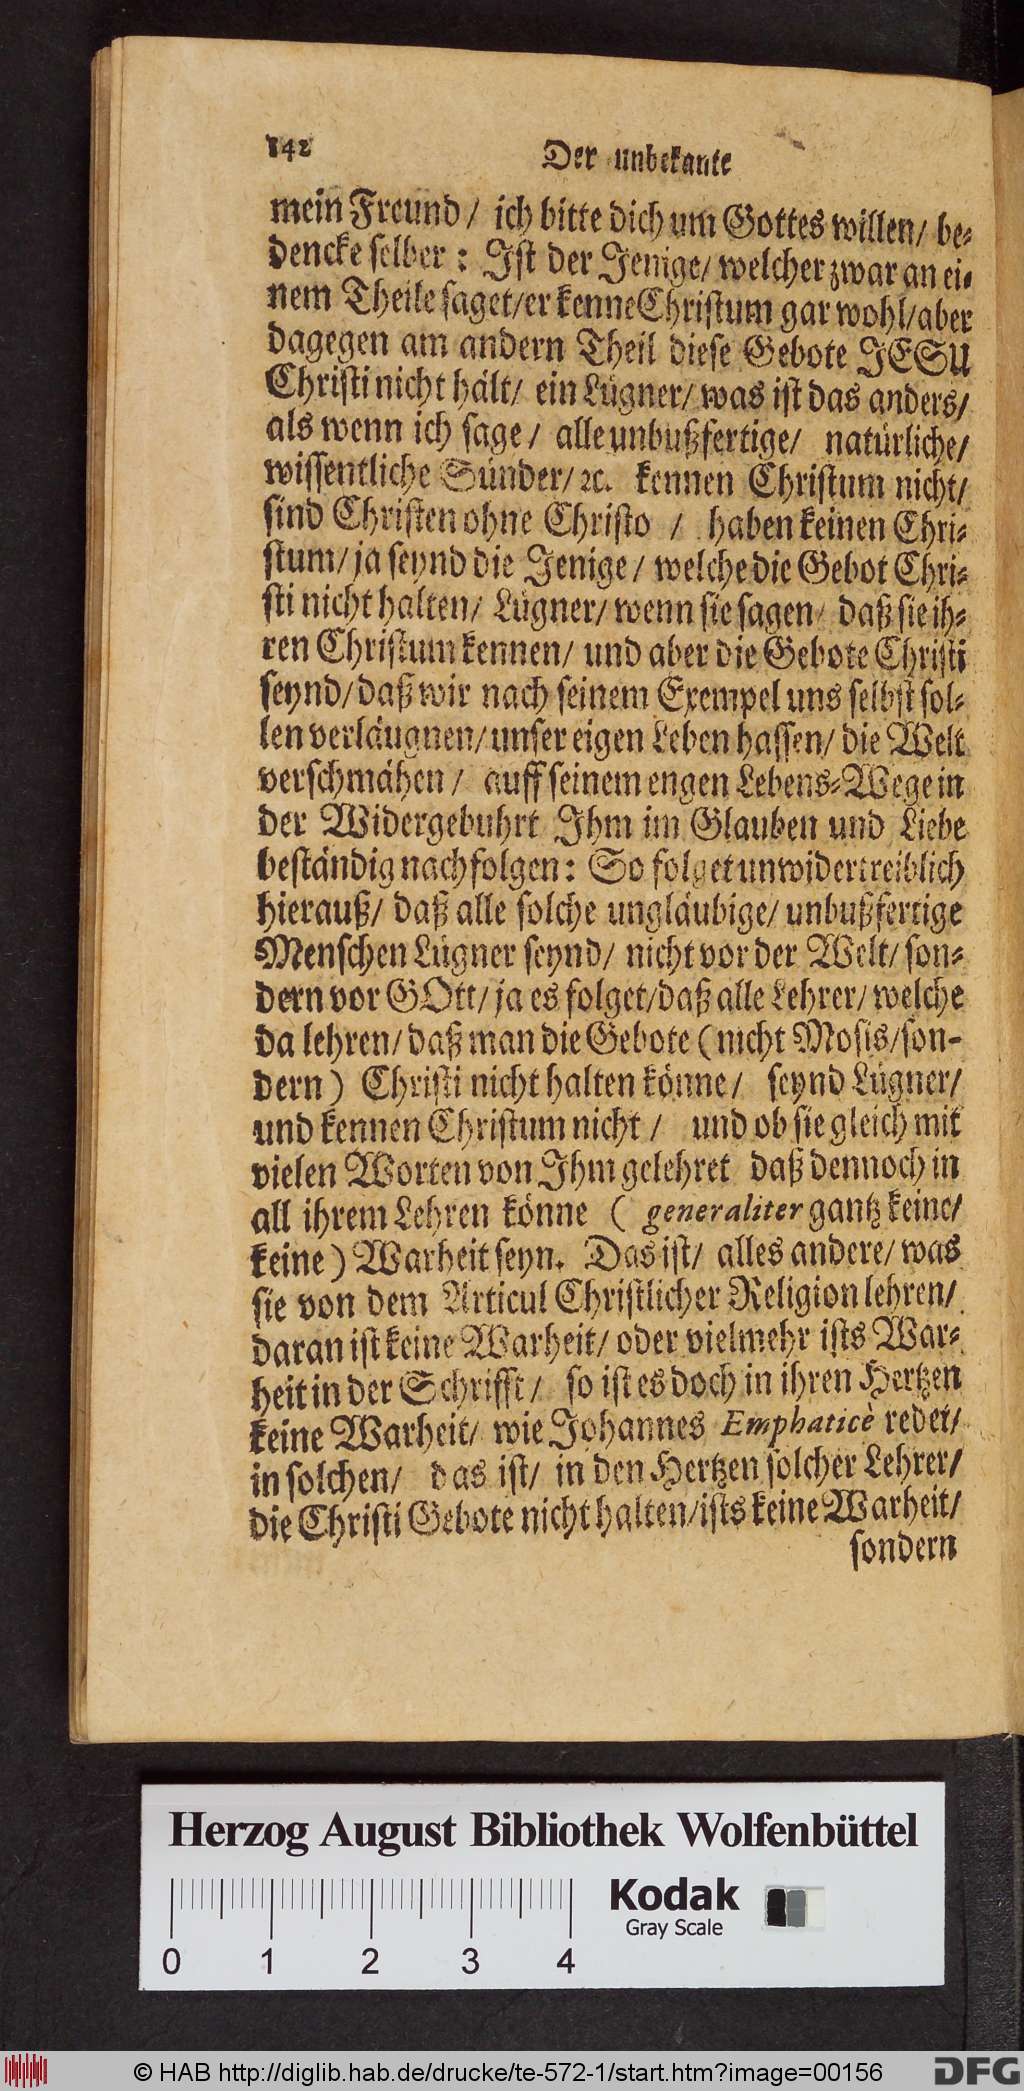 142
Der unbekante
mein Freund / ich bitte dich um Gottes willen / be⸗
dencke selber : Ist der Jenige / welcher zwar an ei⸗
nem Theile saget / er kenne Christum gar wohl / aber
dagegen am andern Theil diese Gebote JESU
Christi nicht hält / ein Lügner / was ist das anders /
als wenn ich sage / alle unbußfertige / natürliche /
wissentliche Sünder / ꝛc. kennen Christum nicht /
sind Christen ohne Christo / haben keinen Chri⸗
stum / ja seynd die Jenige / welche die Gebot Chri⸗
sti nicht halten / Lügner / wenn sie sagen / daß sie ih⸗
ren Christum kennen / und aber die Gebote Christi
seynd / daß wir nach seinem Exempel uns selbst sol⸗
len verläugnen / unser eigen Leben hassen / die Welt
verschmähen / auff seinem engen Lebens⸗Wege in
der Widergebuhrt Ihm im Glauben und Liebe
beständig nachfolgen : So folget unwidertreiblich
hierauß / daß alle solche ungläubige / unbußfertige
Menschen Lügner seynd / nicht vor der Welt / son⸗
dern vor GOtt / ja es folget / daß alle Lehrer / welche
da lehren / daß man die Gebote ( nicht Mosis / son-
dern ) Christi nicht halten könne / seynd Lügner /
und kennen Christum nicht / und ob sie gleich mit
vielen Worten von Ihm gelehret daß dennoch in
all ihrem Lehren könne ( generaliter gantz keine /
keine ) Warheit seyn. Das ist / alles andere / was
sie von dem Articul Christlicher Religion lehren /
daran ist keine Warheit / oder vielmehr ists War⸗
heit in der Schrifft / so ist es doch in ihren Hertzen
keine Warheit / wie Johannes Emphaticè redet /
in solchen / das ist / in den Hertzen solcher Lehrer /
die Christi Gebote nicht halten / ists keine Warheit /
sondern
Herzog August Bibliothek Wolfenbüttel
Kodak
Gray Scale
0 1 2 3 4
© HAB http://diglib.hab.de/drucke/te-572-1/start.htm?image=00156
DFG